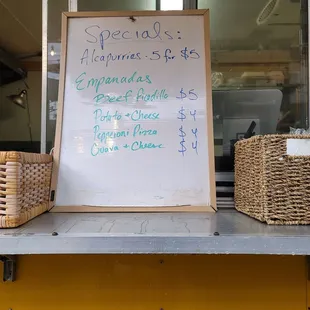 Specials:
Alcapurrias - 5 for $5
Empanadas
Beef Picadillo $5
Potato + Cheese $4
Pepperoni Pizza $4
Guava + Cheese $4